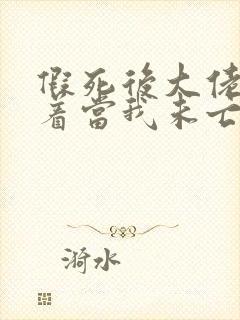 假死後大佬
着當我未亡
漪水